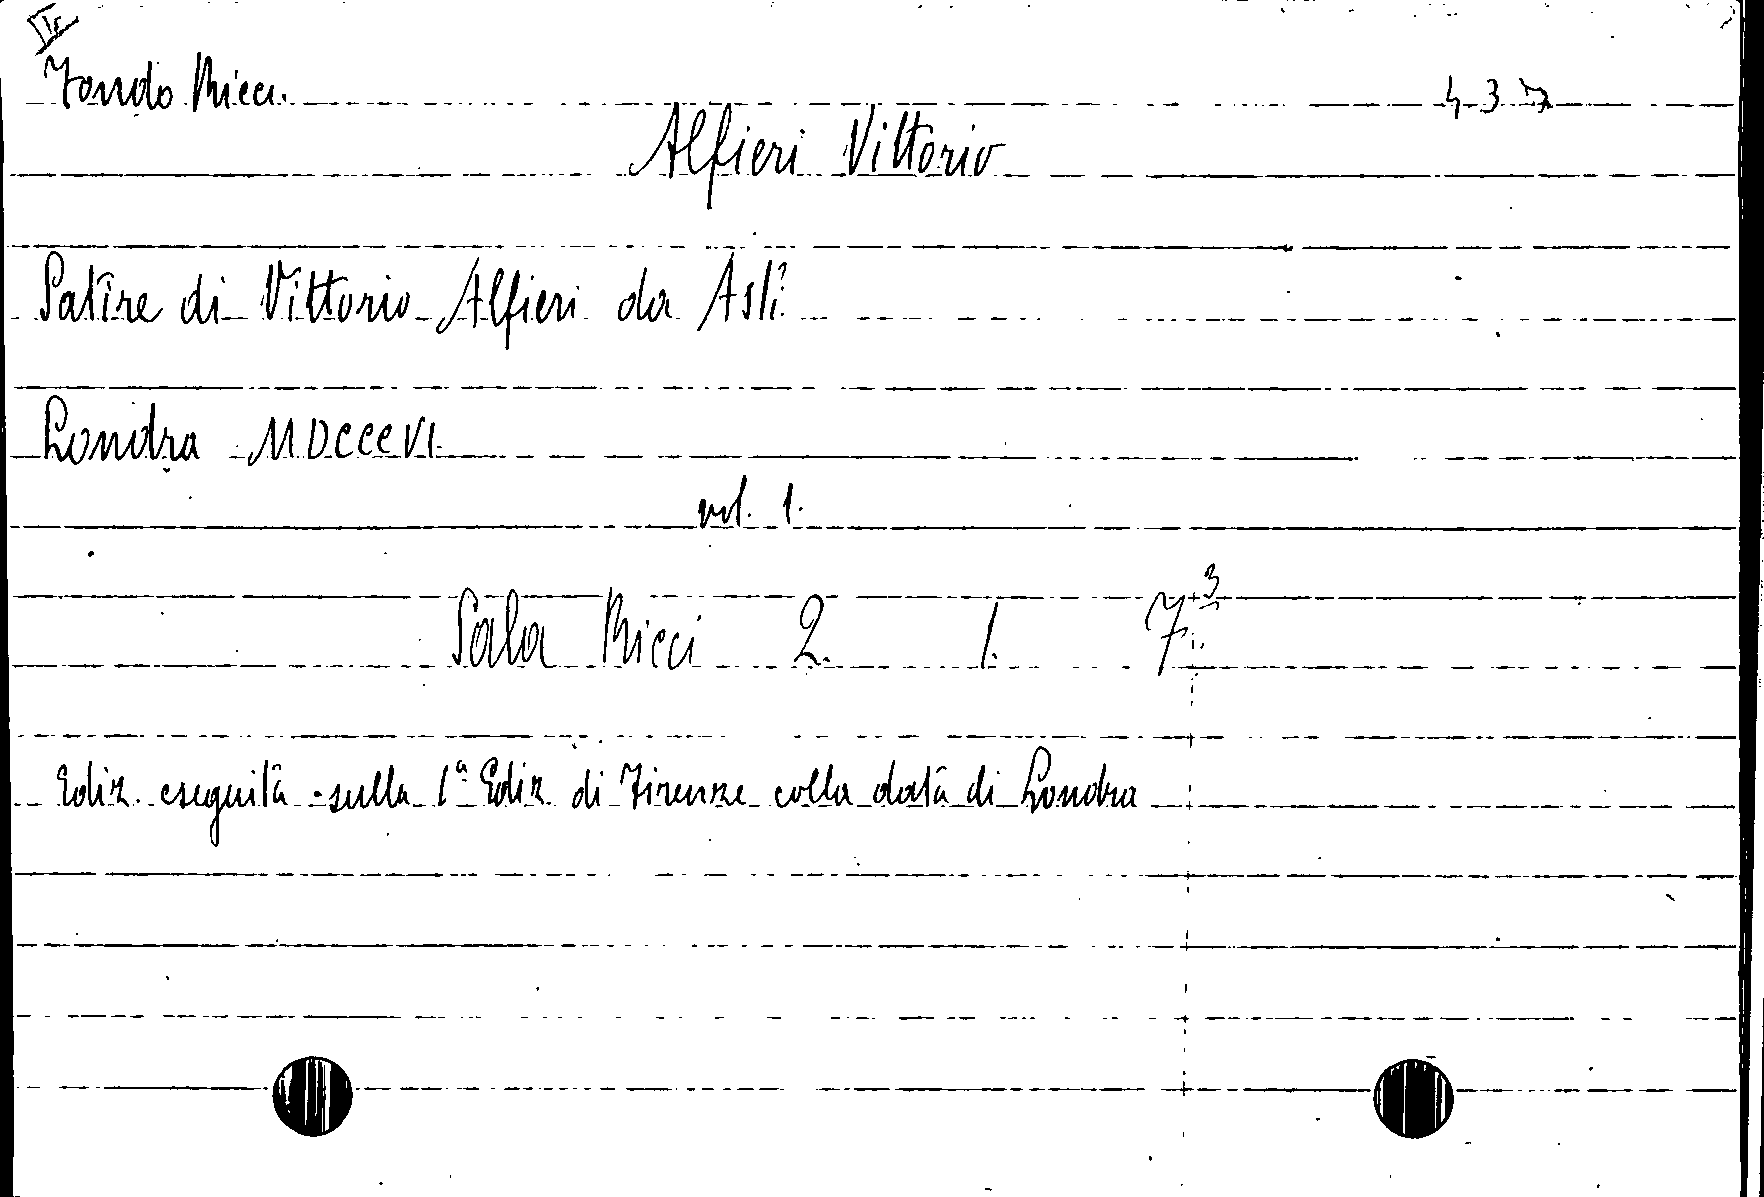 Fondo Ricci. 4 3 7
Alfieri Vittorio
Satire di Vittorio Alfieri da Asti
Londra MDCCCVI.
vol. 1.
Sala Ricci 2. 1. 7.³
Ediz. eseguita sulla 1ª Ediz di Firenze colla data di Londra